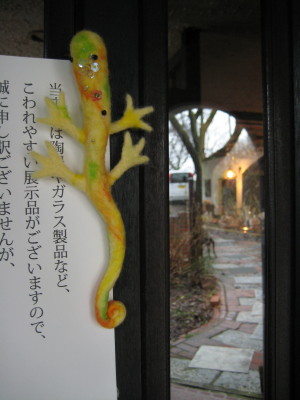 当 は陶 やガラス製品など、
こわれやすい展示品がございますので、
誠に申し訳ございませんが、